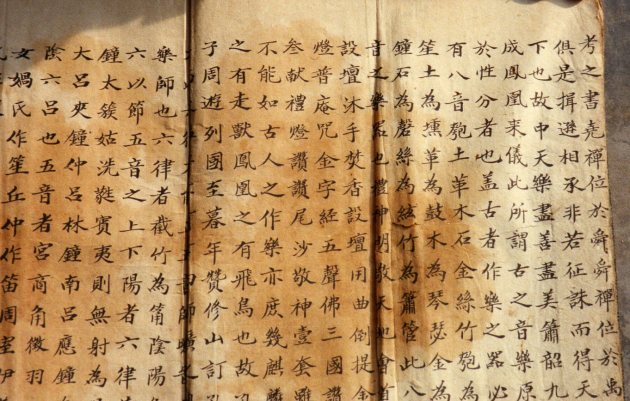 考之書堯禪位於舜舜禪位於禹
俱是揖遜相承非若征誅而得天
下也故中天樂盡善盡美簫韶九
成鳳凰來儀此所謂古之音樂原
於性分者也盖古者作樂之器必
有八音匏土革木石金絲竹匏為
笙土為壎革為鼓木為琴瑟金為
鐘石為磬絲為絃竹為簫管此八
音之樂器也禮神明敬天地會首
設壇沐手焚香設壇用曲倒提金
燈普庵咒金字經五聲佛三國讚
叁献禮燈讚讚尾沙敬神壹套雖
不能如古人之作樂亦庶幾麒麟
之有走獸鳳凰之有飛鳥也故孔
子周遊列國至暮年贊修山訂
師曠
樂師也六律者截竹為筩陰陽
六以節五音之上下陽者六律
鐘太簇姑洗蕤賓夷則無射為
大呂夾鐘仲呂林鐘南呂應鐘
陰六呂也五音者宮商角徵羽
女媧氏作笙丘仲作笛周室伊